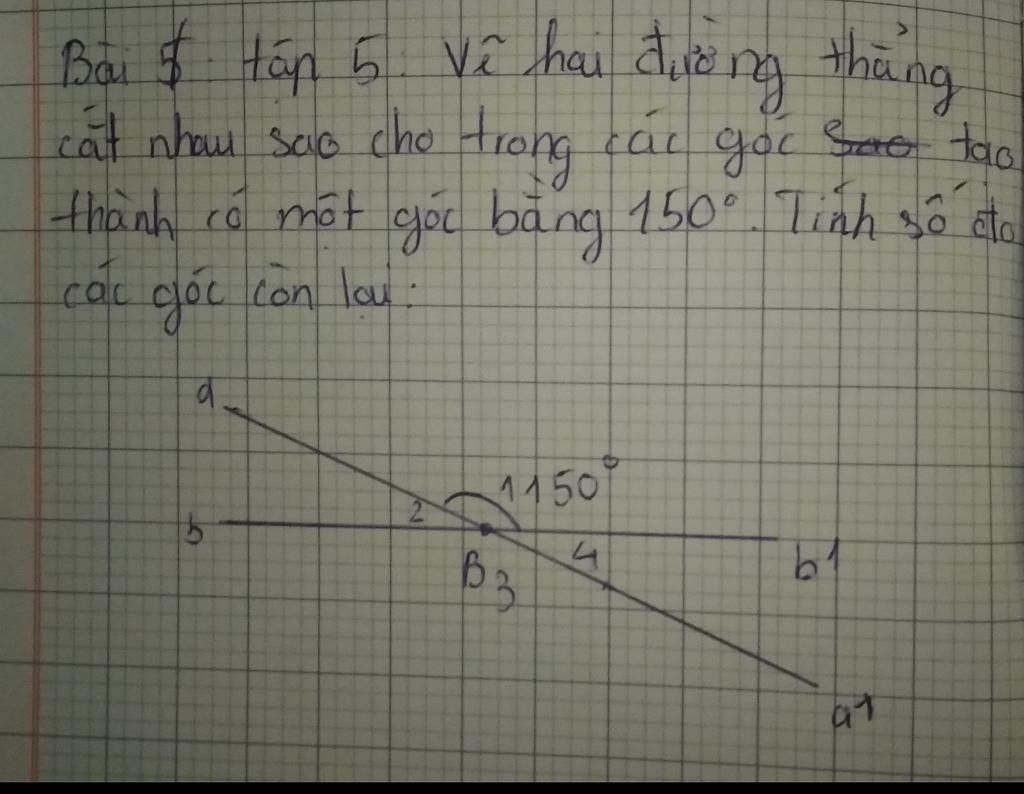 Bài tập 5. Vẽ hai đường thẳng
cắt nhau sao cho trong các góc tạo
thành có một góc bằng 150°. Tính số đo
các góc còn lại:
a
1 150°
2
b
B 3
4
b1
a1